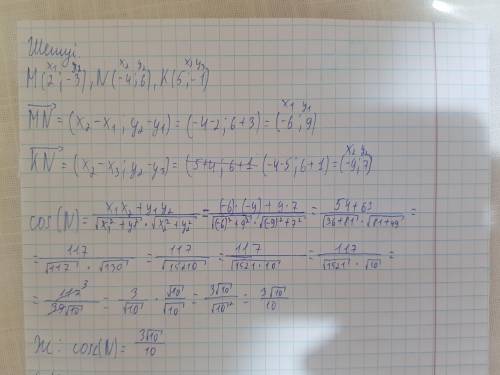 Шешуі
x₁ y₁ x₂ y₂ x₃ y₃
M(2;-3), N(-4;6), K(5;-1)
x₁ y₁
MN = (x₂-x₁, y₂-y₁) = (-4-2; 6+3) = (-6; 9)
x₂ y₂
KN = (x₂-x₃; y₂-y₃) = (5+4; 6+1 (-4-5; 6+1) = (-9; 7)
cos(N) = (x₁x₂ + y₁y₂)/(√(x₁² + y₁²) · √(x₂² + y₂²)) = ((-6)·(-9) + 9·7)/(√((-6)² + 9²) · √((-9)² + 7²)) = (54+63)/(√(36+81) · √(81+49)) =
= 117/(√117 · √130) = 117/√15210 = 117/√(1521·10) = 117/(√1521 · √10) =
= 117³/(39√10) = 3/√10 · √10/√10 = 3√10/√10² = 3√10/10
Ж: cos(N) = 3√10/10